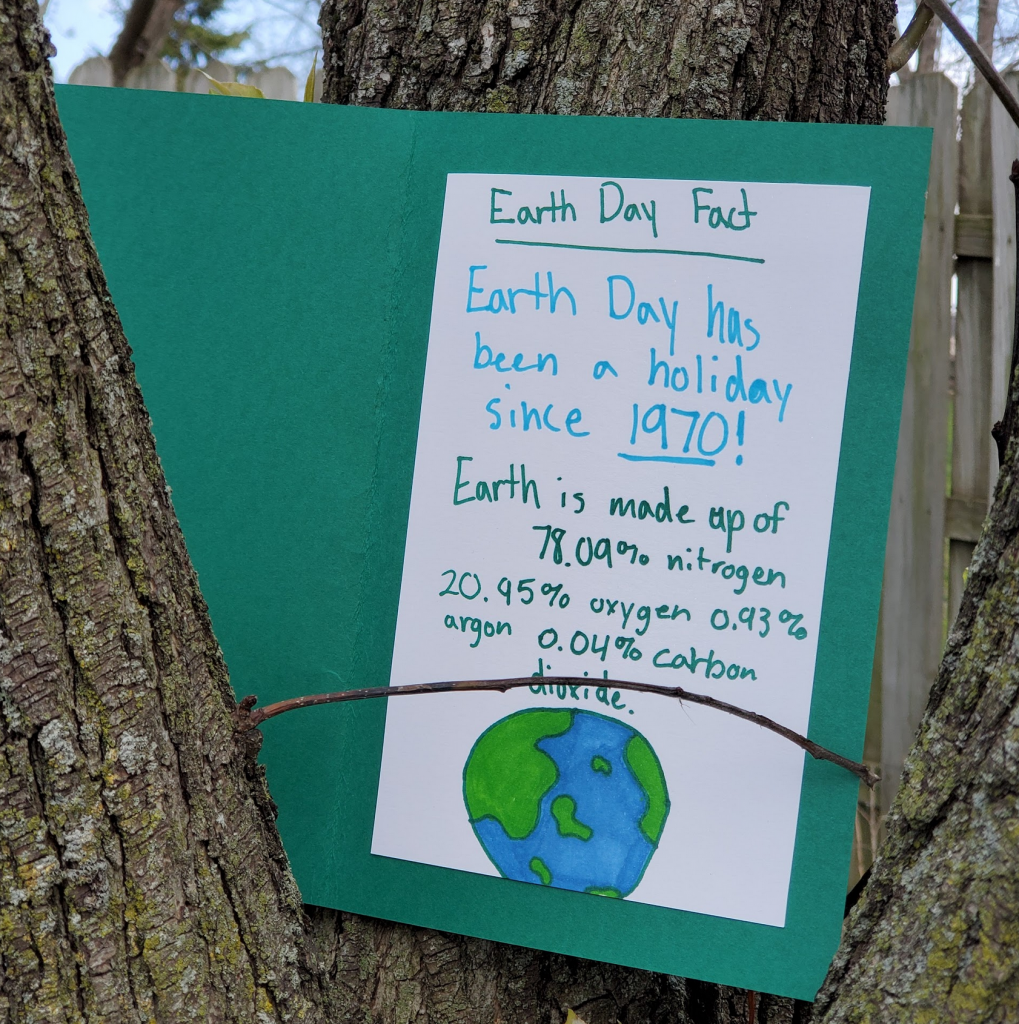 Earth Day Fact
Earth Day has
been a holiday
since 1970!
Earth is made up of
78.09% nitrogen
20.95% oxygen 0.93%
argon 0.04% carbon
dioxide.